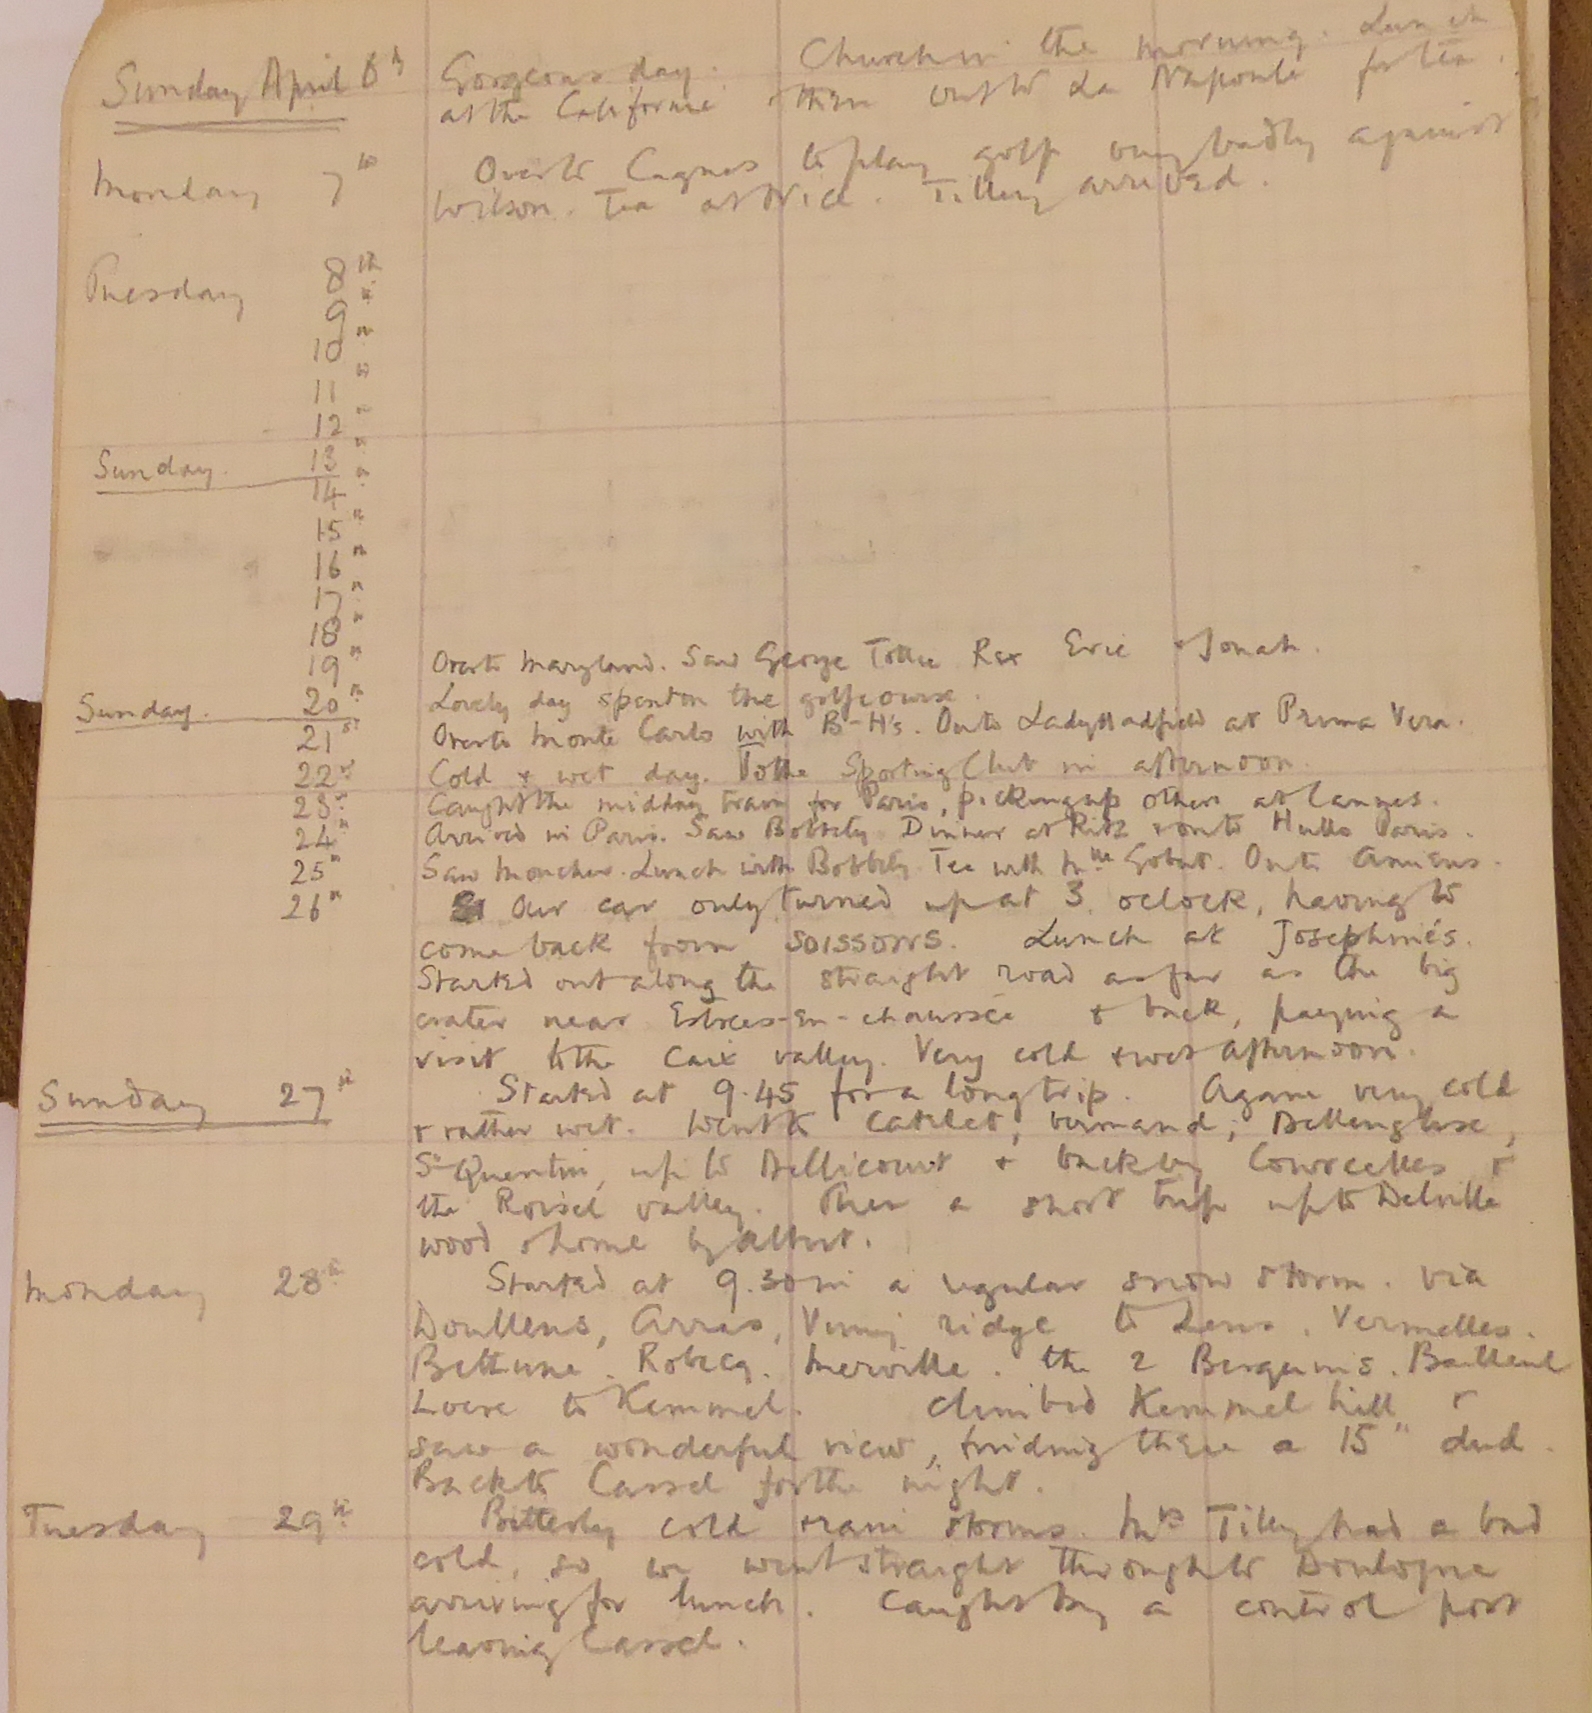 Sunday April 6th Gorgeous day. Church in the morning. Lunch
at the Californie then out to La Napoule for tea.
Monday 7th Over to Cagnes to play golf very badly against
Wilson. Tea at Nice. Tilley arrived.
Tuesday 8th
9th
10th
11th
12th
Sunday. 13th
14th
15th
16th
17th
18th
19th Over to Maryland. Saw George Tollie Rex Eric & Jonah.
Sunday. 20th Lovely day spent on the golf course.
21st Over to Monte Carlo with B-H's. On to Lady Hadfield at Prima Vera.
22nd Cold & wet day. To the Sporting Club in afternoon.
23rd Caught the midday train for Paris, picking up others at Cannes.
24th Arrived in Paris. Saw Bobbety Dinner at Ritz & on to Hullo Paris.
25th Saw Moncher. Lunch with Bobbety. Tea with Mlle Gobut. On to Amiens.
26th Our car only turned up at 3. oclock, having to
come back from SOISSONS. Lunch at Josephine's.
Started out along the straight road as far as the big
crater near Estrees-en-chaussée & back, paying a
visit to the Caix valley. Very cold & wet afternoon.
Sunday 27th Started at 9.45 for a long trip. Again very cold
& rather wet. Went to Catelet, Vermand, Bellenglise,
St Quentin, up to Bellicourt & back by Courcelles &
the Roisel valley. Then a short trip up to Delville
wood & home by Albert.
Monday 28th Started at 9.30 in a regular snow storm. via
Doullens, Arras, Vimy ridge to Lens. Vermelles.
Bethune. Robecq. Merville. the 2 Berquins. Bailleul
Locre to Kemmel. Climbed Kemmel hill &
saw a wonderful view, finding there a 15" dud.
Back to Cassel for the night.
Tuesday 29th Bitterly cold & rain storms. Mrs Tilley had a bad
cold, so we went straight through to Boulogne
arriving for lunch. Caught by a control post
leaving Cassel.